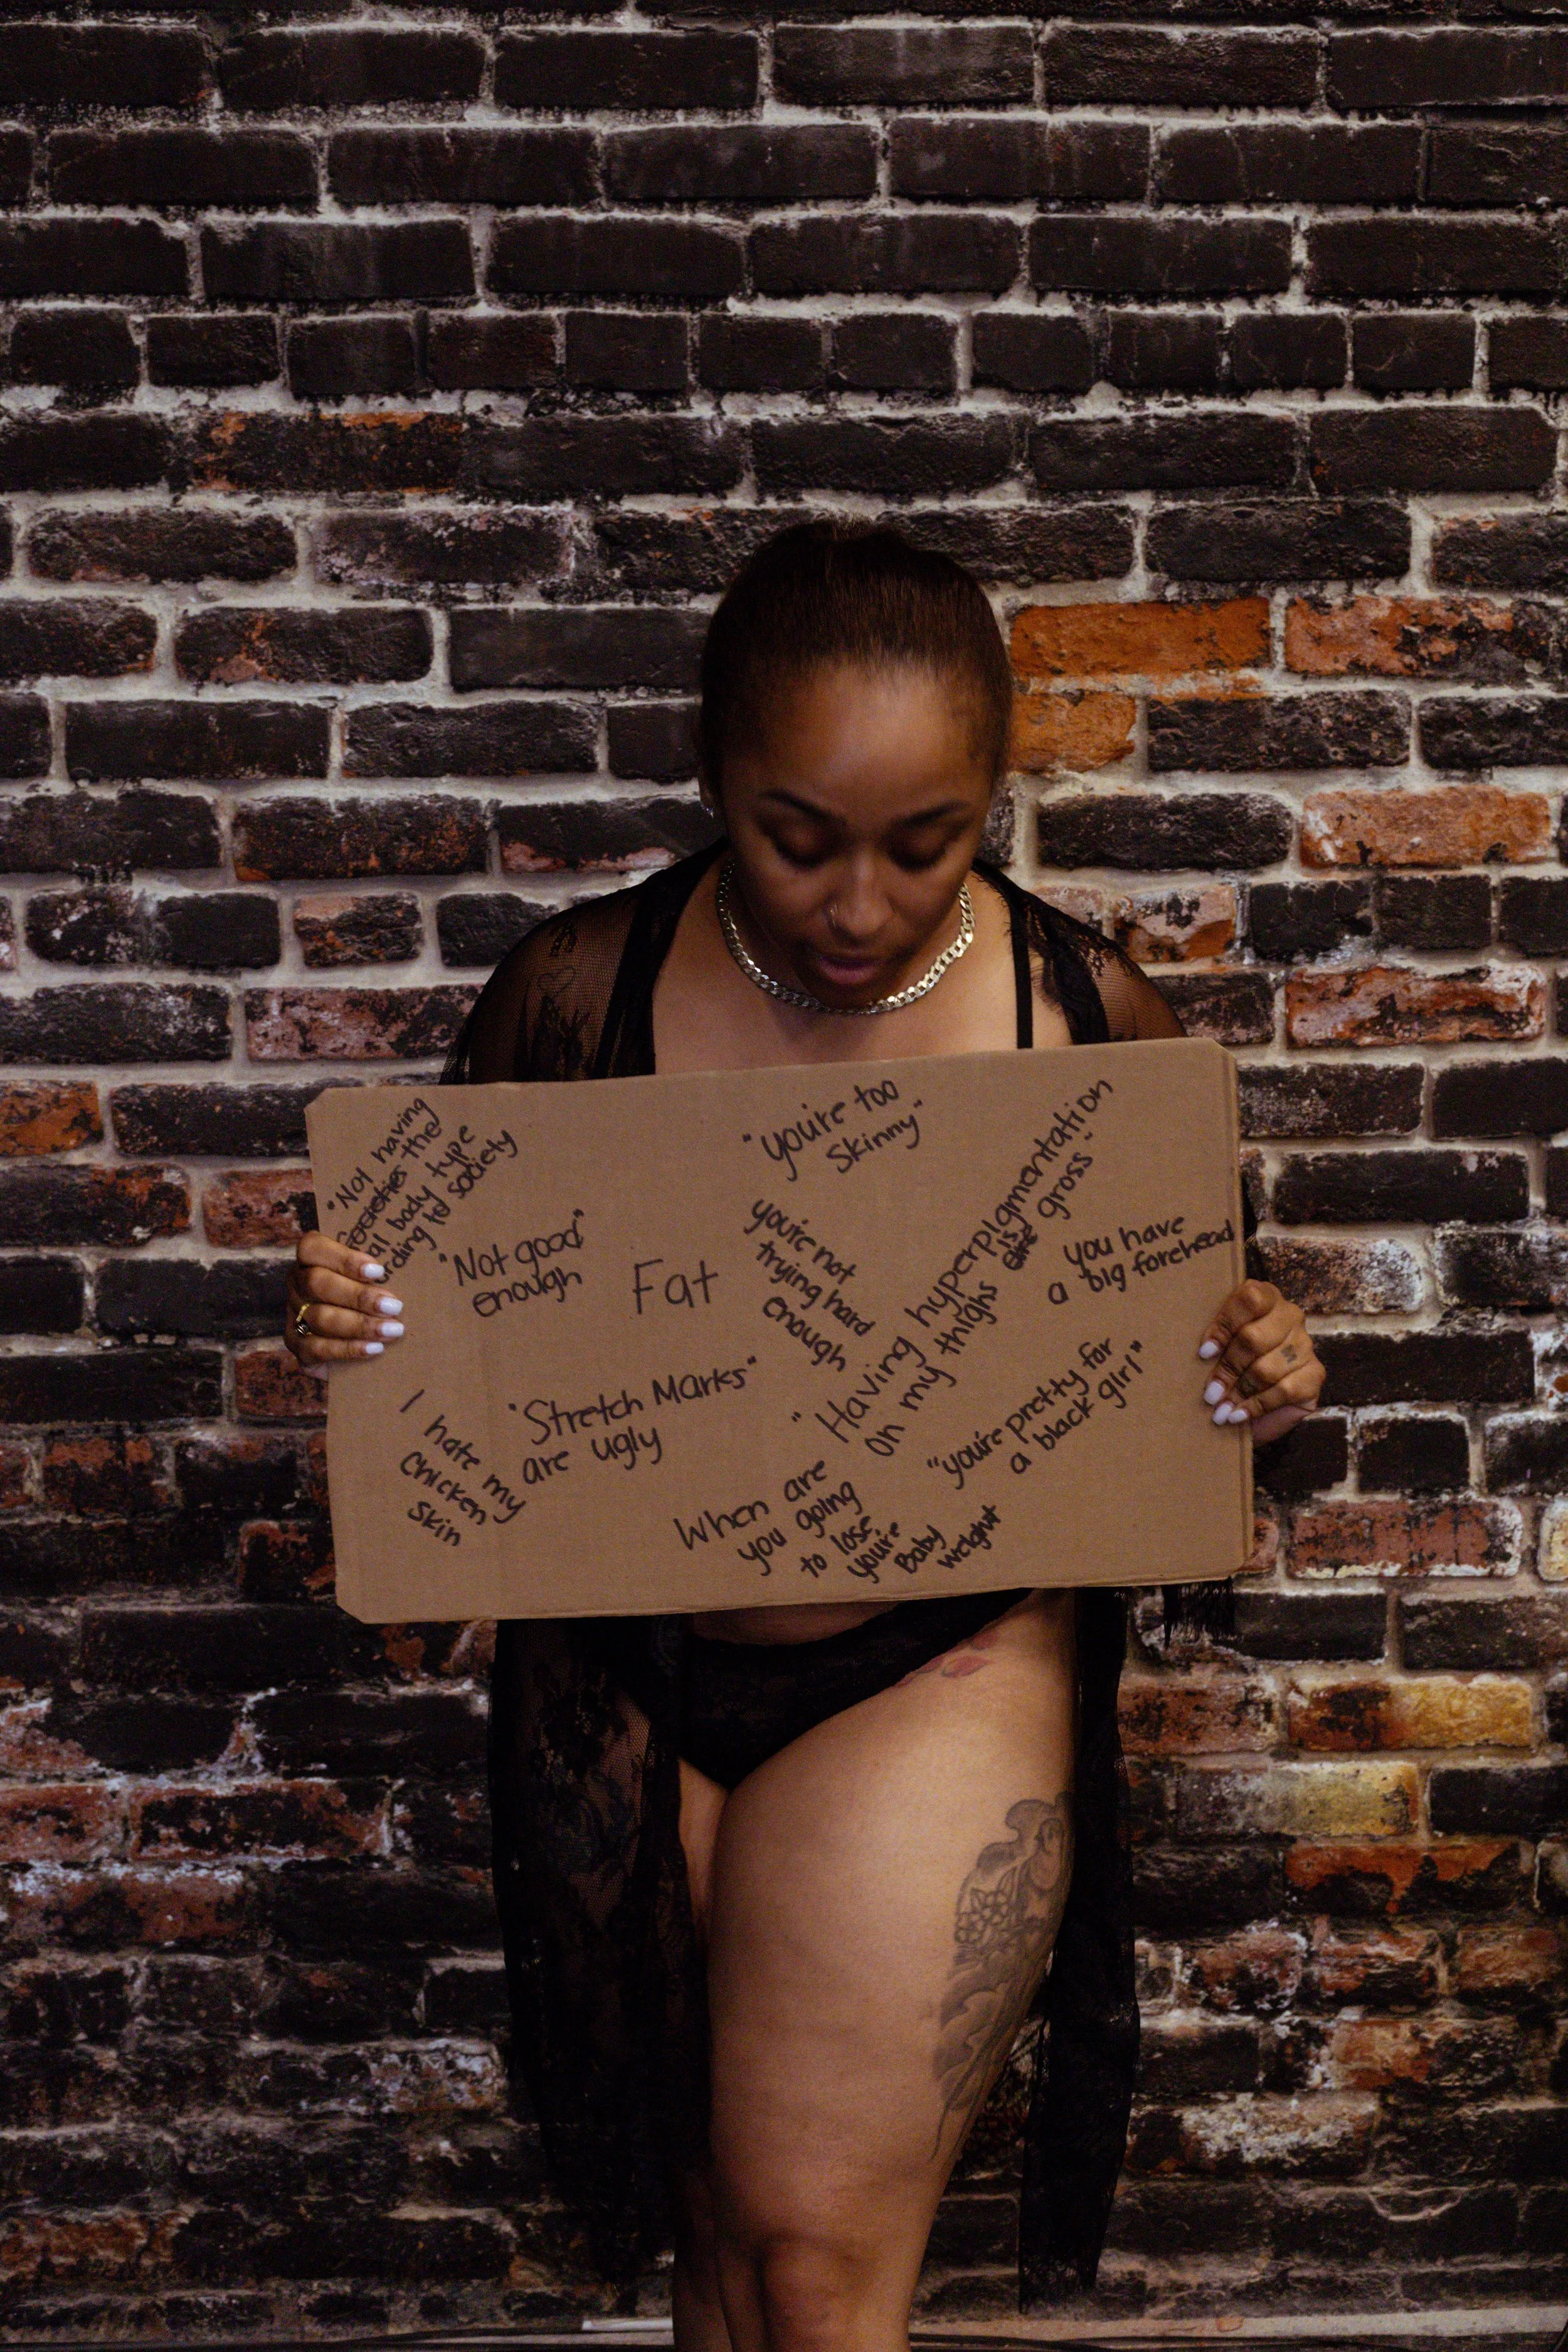 "Not having
societies the
al body type
ording to society
"Not good"
enough
Fat
"you're too
Skinny"
you're not
trying hard
enough
"Having hyperpigmentation
on my thighs is gross"
you have
a big forehead
I hate my
chicken
skin
"Stretch Marks"
are ugly
When are
you going
to lose
you're
Baby
weight
"you're pretty for
a black girl"